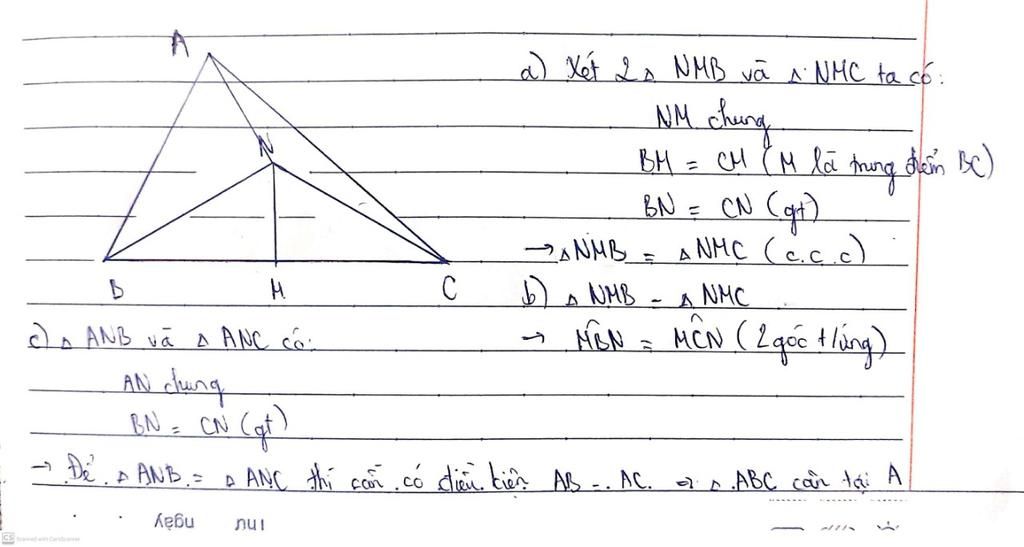 A
N
B M C
a) Xét 2 △ NMB và △ NMC ta có:
NM chung
BM = CM (M là trung điểm BC)
BN = CN (gt)
→ △NMB = △NMC (c.c.c)
b) △ NMB = △ NMC
→ MB̂N = MĈN (2 góc t/ứng)
c) △ ANB và △ ANC có:
AN chung
BN = CN (gt)
→ Để △ ANB = △ ANC thì cần có điều kiện AB = AC ⇒ △ ABC cân tại A
ngày
CS Scanned with CamScanner